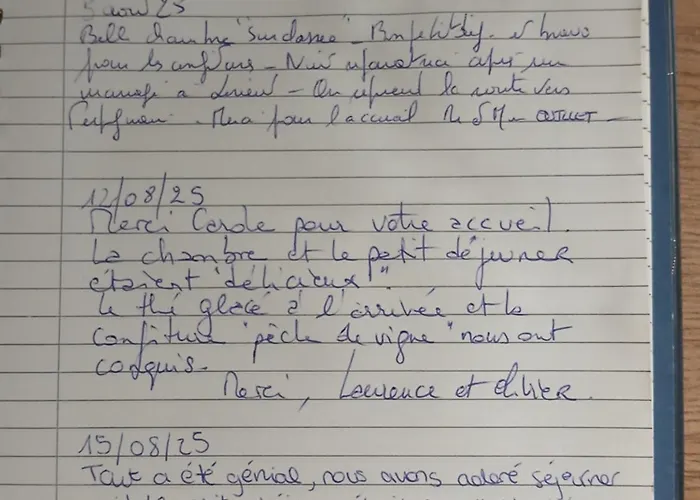 août 25
Belle chambre "surclassée" - Bon petit dej. et bravo
pour les confitures - Nuit réparatrice après un
mariage à Lorient - On reprend la route vers
Perpignan. Merci pour l'accueil Mr & Mme
12/08/25
Merci Carole pour votre accueil.
La chambre et le petit déjeuner
étaient "délicieux".
Le thé glacé à l'arrivée et la
confiture "pêche de vigne" nous ont
conquis.
Merci, Laurence et Olivier.
15/08/25
Tout a été génial, nous avons adoré séjourner